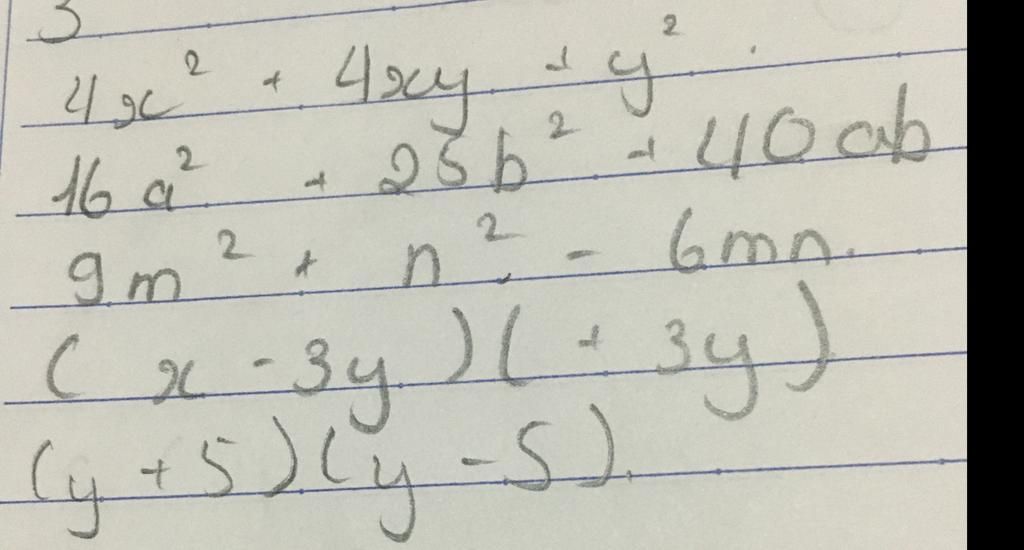 3
4x² + 4xy + y²
16a² + 25b² + 40ab
9m² + n² - 6mn.
(x - 3y)( + 3y)
(y + 5)(y - 5).